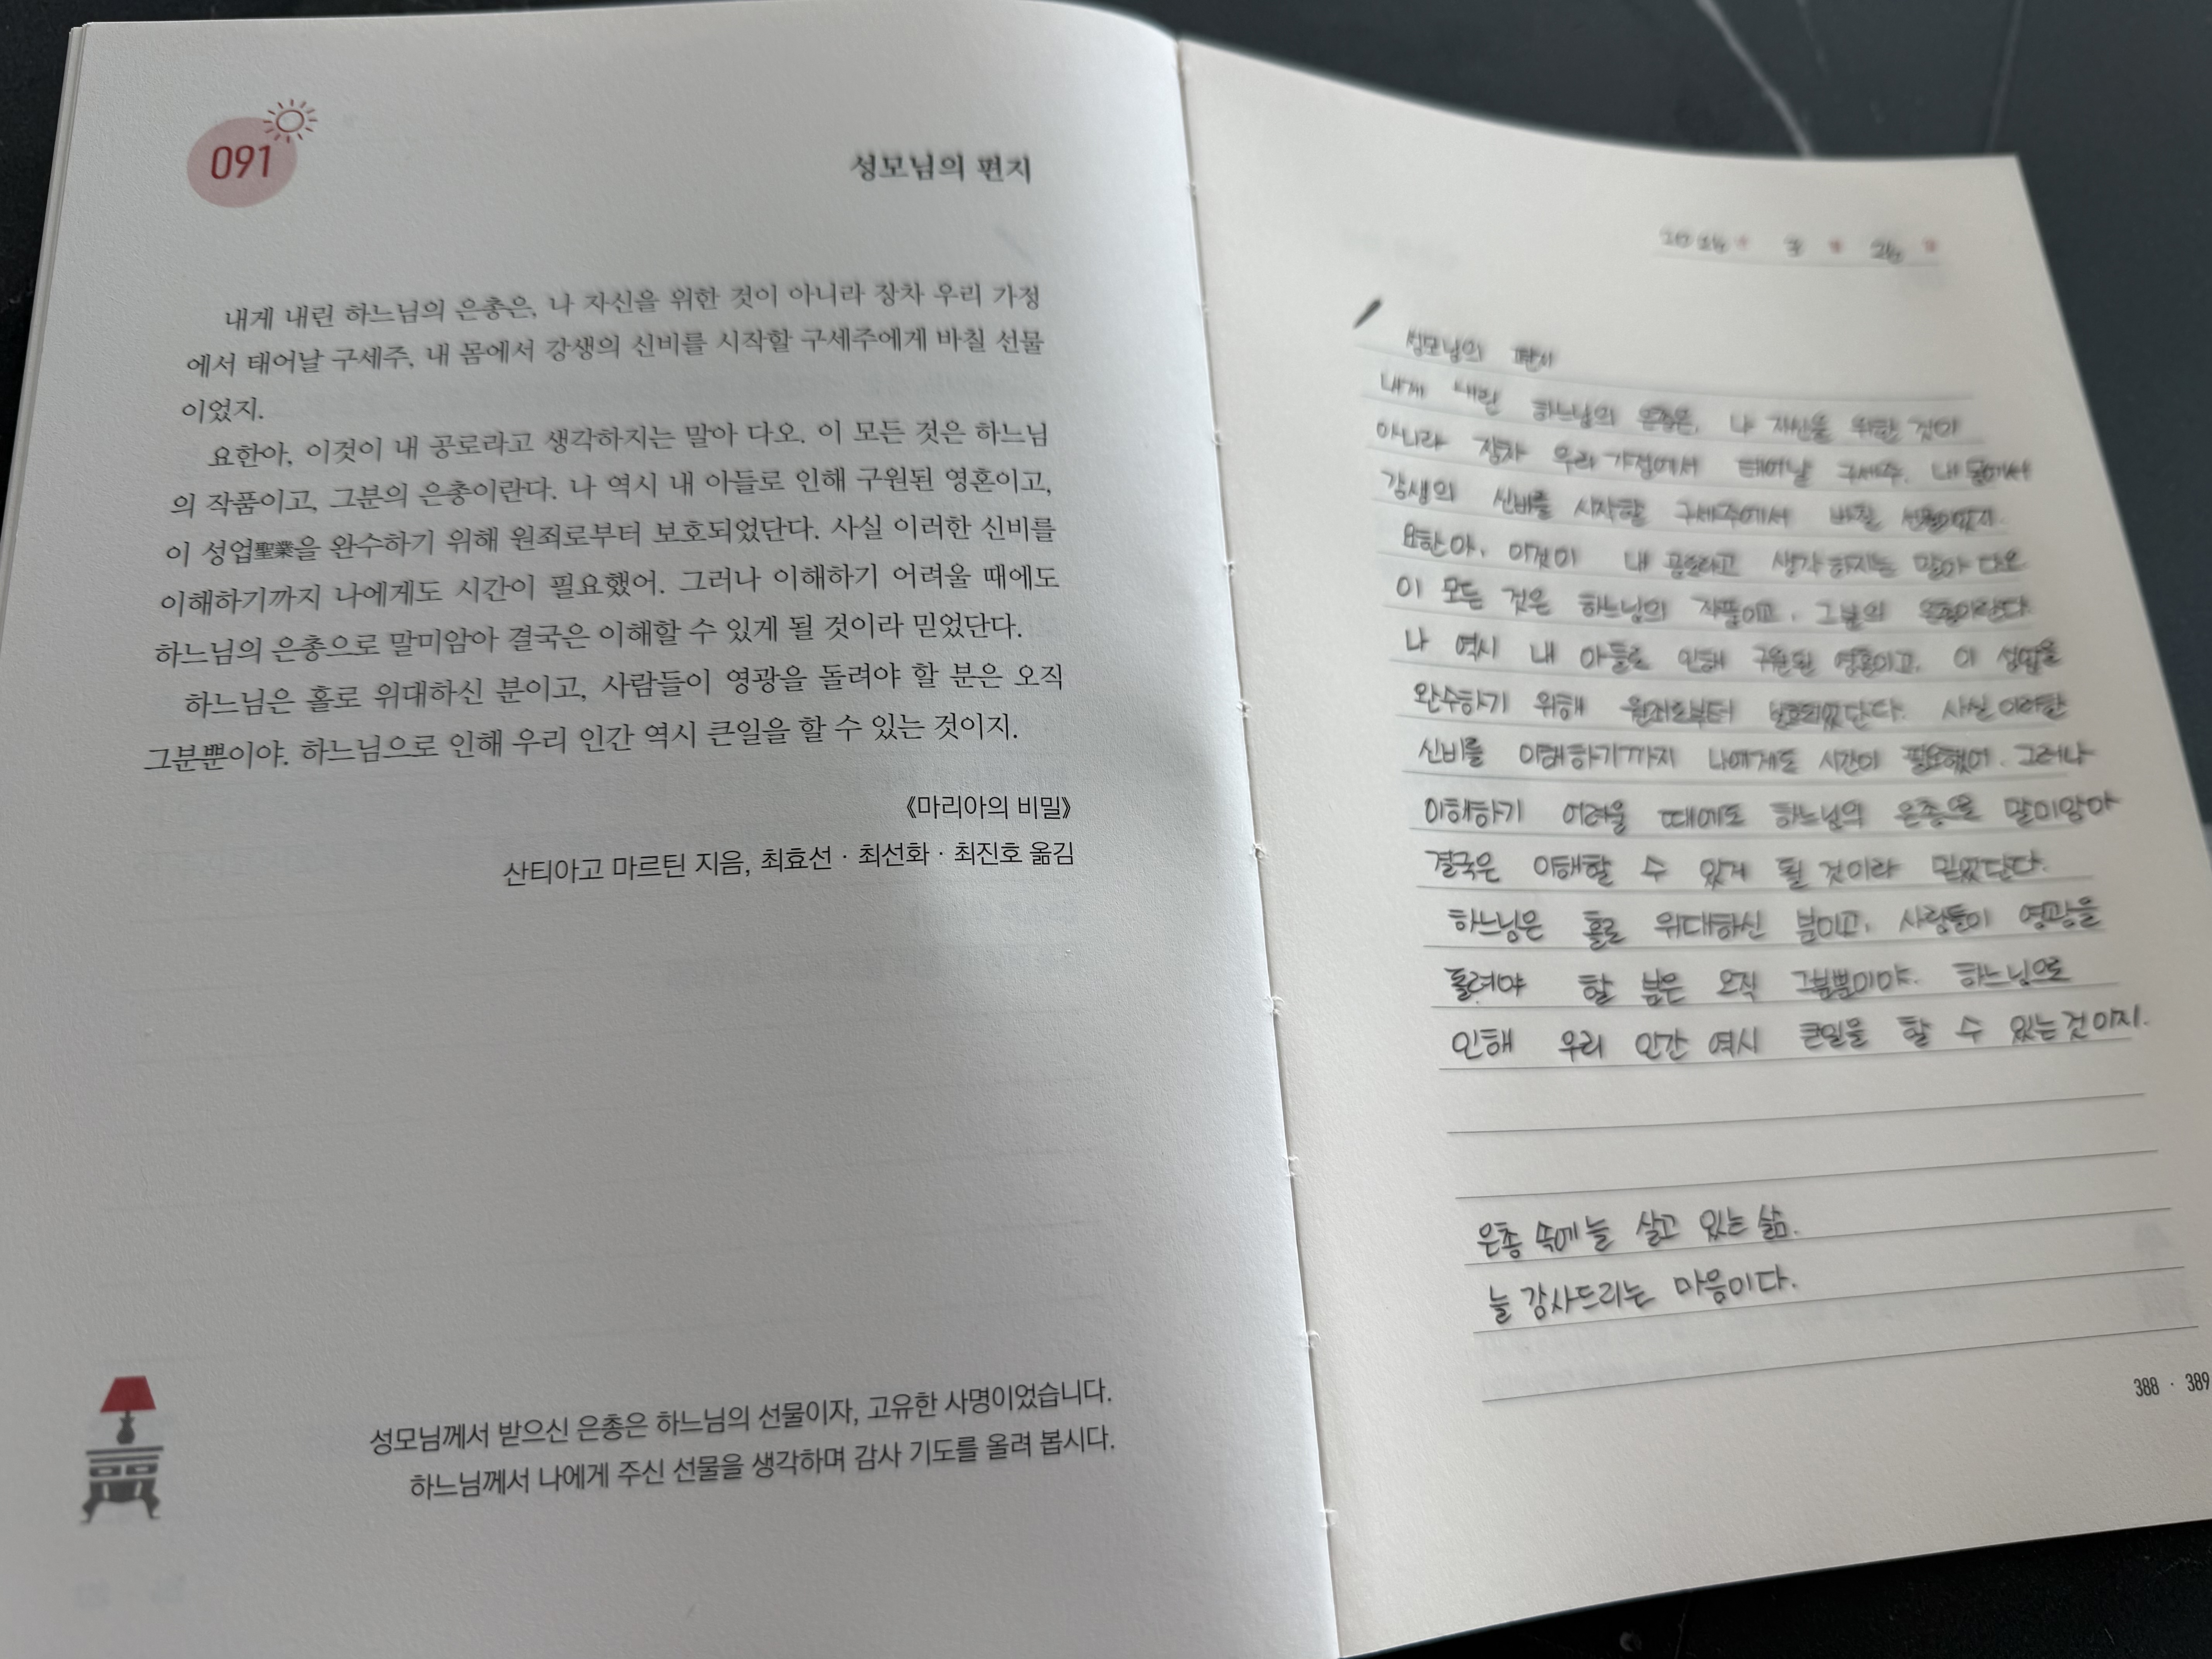 091
성모님의 편지
내게 내린 하느님의 은총은, 나 자신을 위한 것이 아니라 장차 우리 가정
에서 태어날 구세주, 내 몸에서 강생의 신비를 시작할 구세주에게 바칠 선물
이었지.
요한아, 이것이 내 공로라고 생각하지는 말아 다오. 이 모든 것은 하느님
의 작품이고, 그분의 은총이란다. 나 역시 내 아들로 인해 구원된 영혼이고,
이 성업聖業을 완수하기 위해 원죄로부터 보호되었단다. 사실 이러한 신비를
이해하기까지 나에게도 시간이 필요했어. 그러나 이해하기 어려울 때에도
하느님의 은총으로 말미암아 결국은 이해할 수 있게 될 것이라 믿었단다.
하느님은 홀로 위대하신 분이고, 사람들이 영광을 돌려야 할 분은 오직
그분뿐이야. 하느님으로 인해 우리 인간 역시 큰일을 할 수 있는 것이지.
《마리아의 비밀》
산티아고 마르틴 지음, 최효선 · 최선화 · 최진호 옮김
성모님께서 받으신 은총은 하느님의 선물이자, 고유한 사명이었습니다.
하느님께서 나에게 주신 선물을 생각하며 감사 기도를 올려 봅시다.
성모님의 편지
내게 내린 하느님의 은총은, 나 자신을 위한 것이
아니라 장차 우리 가정에서 태어날 구세주, 내 몸에서
강생의 신비를 시작할 구세주에게 바칠 선물이었지.
요한아, 이것이 내 공로라고 생각하지는 말아 다오
이 모든 것은 하느님의 작품이고, 그분의 은총이란다
나 역시 내 아들로 인해 구원된 영혼이고, 이 성업을
완수하기 위해 원죄로부터 보호되었단다. 사실 이러한
신비를 이해하기까지 나에게도 시간이 필요했어. 그러나
이해하기 어려울 때에도 하느님의 은총으로 말미암아
결국은 이해할 수 있게 될 것이라 믿었단다.
하느님은 홀로 위대하신 분이고, 사람들이 영광을
돌려야 할 분은 오직 그분뿐이야. 하느님으로
인해 우리 인간 역시 큰일을 할 수 있는 것이지.
은총 속에 늘 살고 있는 삶.
늘 감사드리는 마음이다.
388 · 389